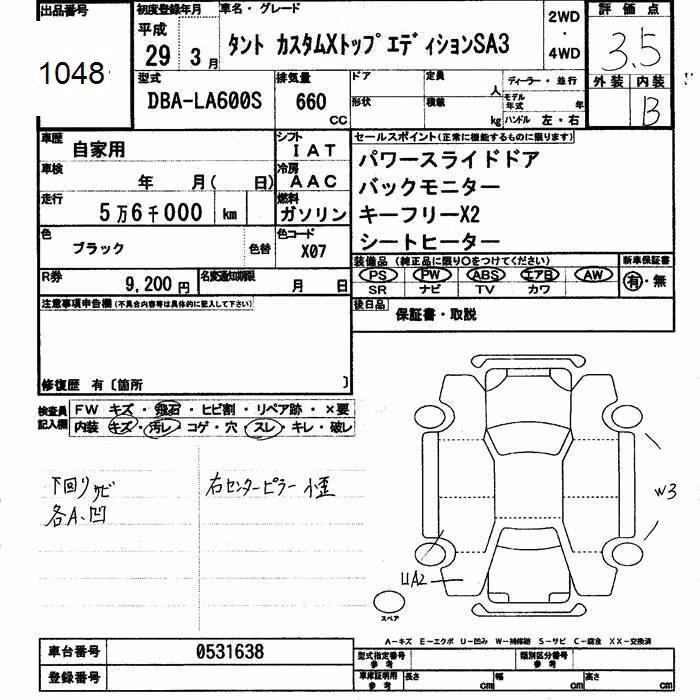 出品番号
1048
初度登録年月
平成
29 3月
車名・グレード
タント カスタムXトップエディションSA3
2WD
・
4WD
評価点
3.5
外装 内装
B
型式
DBA-LA600S
排気量
660
CC
ドア
形状
定員
人
積載
kg
ディーラー・並行
モデル年式 年
ハンドル 左・右
車歴
自家用
シフト
IAT
車検
年 月( 日)
冷房
AAC
走行
5万6千000 km
燃料
ガソリン
色
ブラック
色替
色コード
X07
R券
9,200円
名変通知期限
月 日
セールスポイント(正常に機能するものに限ります)
パワースライドドア
バックモニター
キーフリーX2
シートヒーター
装備品(純正品に限り○をつけてください)
PS PW ABS エアB AW
SR ナビ TV カワ
新車保証書
有・無
後日品
保証書・取説
注意事項申告欄(不具合内容等は具体的に記入して下さい)
修復歴 有〔箇所 〕
検査員
記入欄
FW キズ・飛石・ヒビ割・リペア跡・×要
内装 キズ・汚レ・コゲ・穴・スレ・キレ・破レ
下回りサビ
各A、凹
右センターピラー小歪
W3
UA2
スペア
A-キズ E-エクボ U-凹み W-補修跡 S-サビ C-腐食 XX-交換済
車台番号
0531638
登録番号
型式指定番号
参考
類別区分番号
参考
車庫証明用
参考
長さ cm
幅 cm
高さ cm